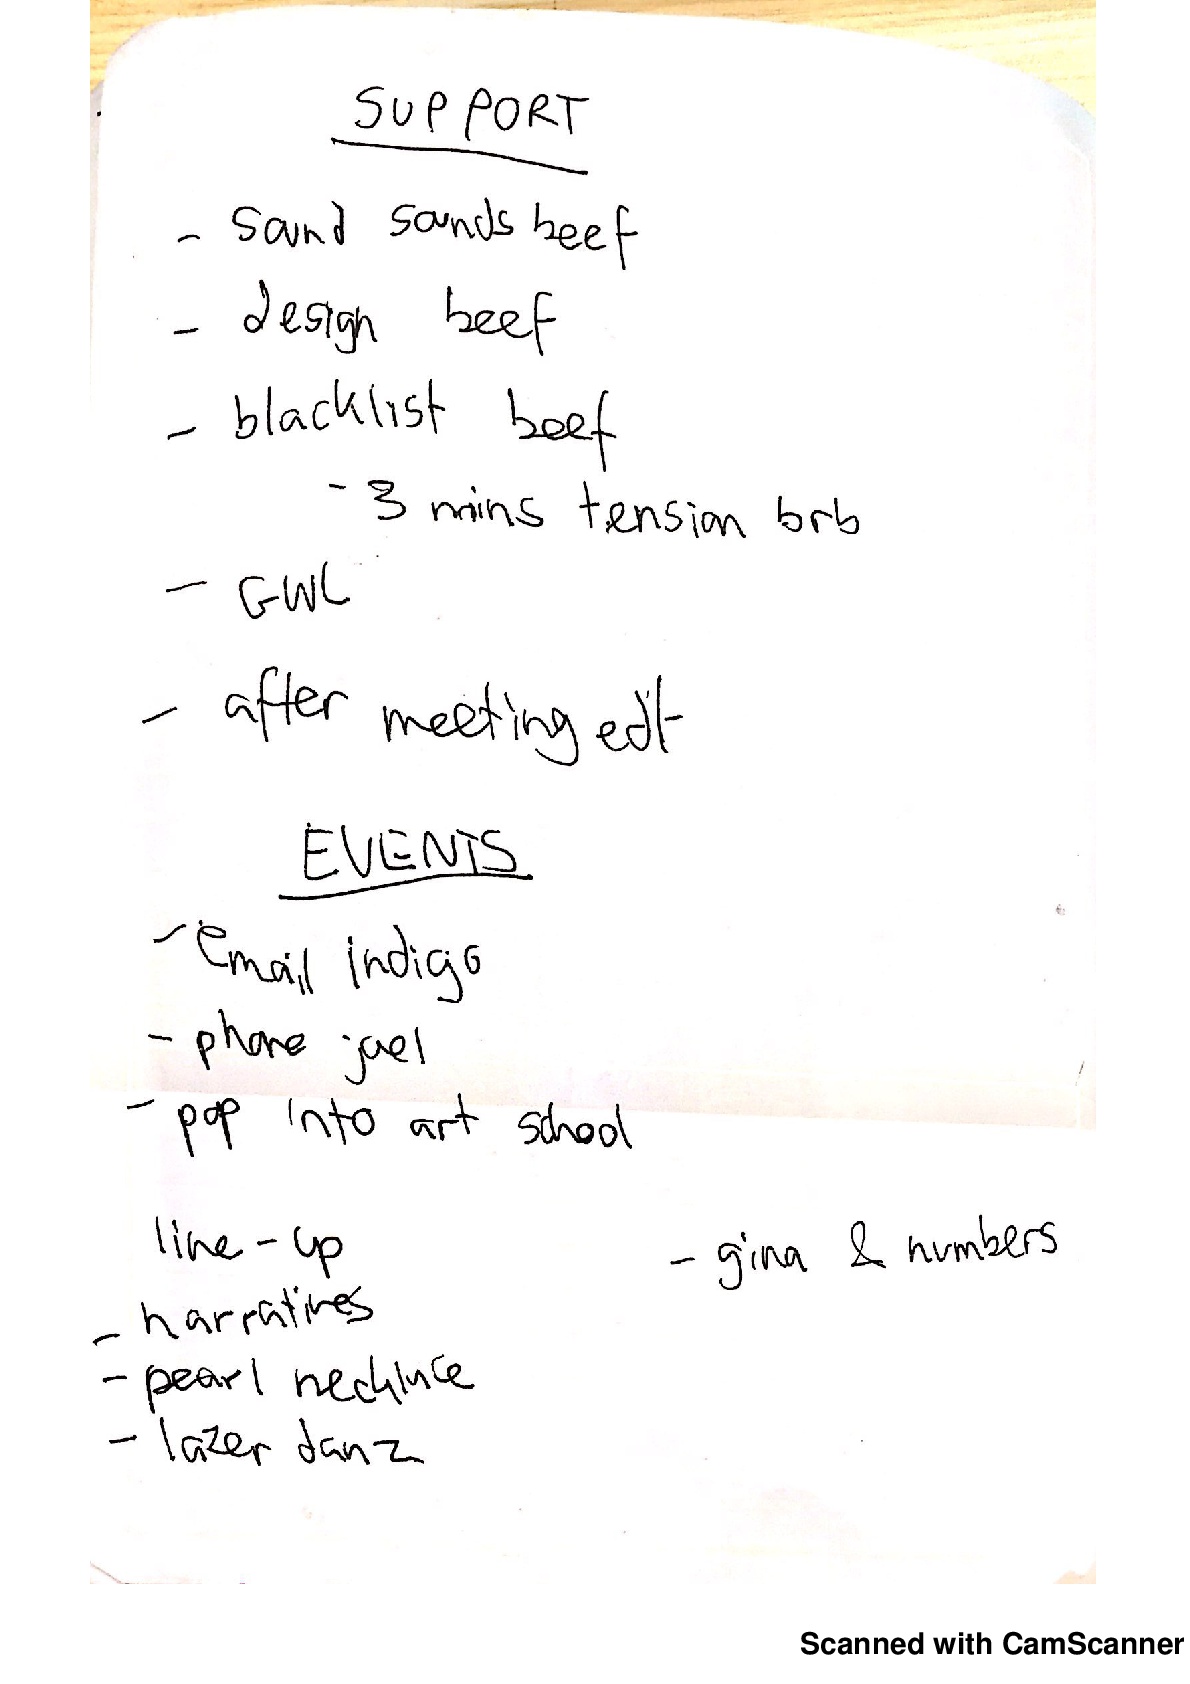 SUPPORT
- sound sounds beef
- design beef
- blacklist beef
- 3 mins tension brb
- GWL
- after meeting edit
EVENTS
- email indigo
- phone jael
- pop into art school
line-up
- gina & numbers
- narratives
- pearl necklace
- lazer danz
Scanned with CamScanner